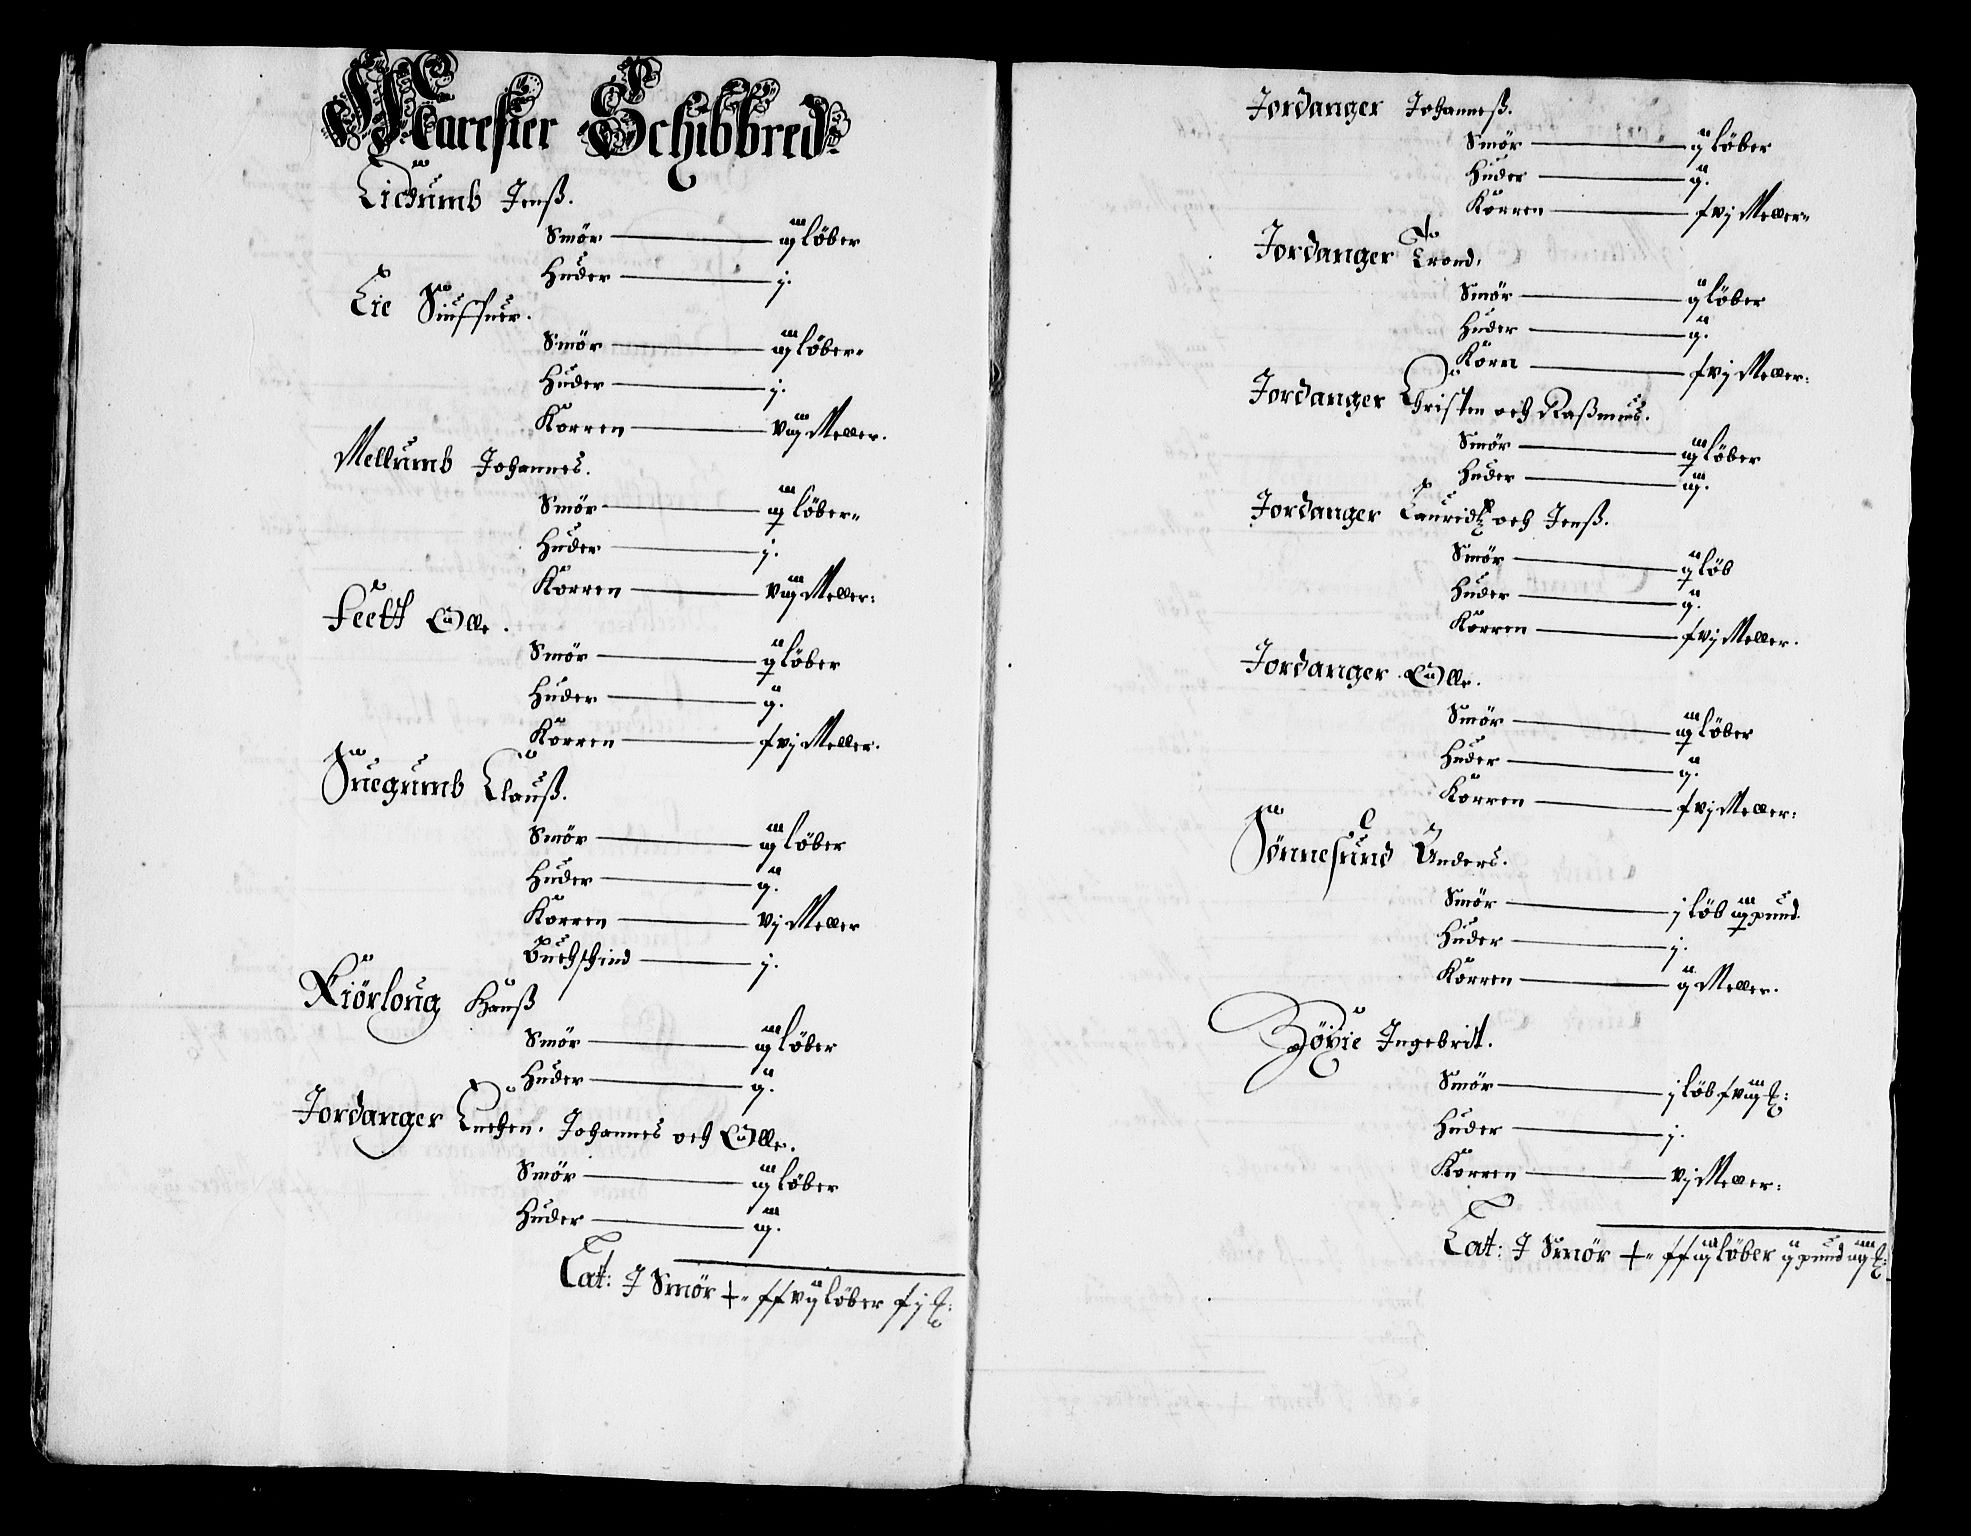 Marefier Schibbred:
Lidumb Jenß.
Smör — iij löber
Huder — j.
Lie Siuffuer.
Smör — iij löber
Huder — j.
Korren — viij Meller.
Mellumb Johannes.
Smör — löber
Huder — j.
Korren — viij Meller:
Feett Olle.
Smör — löber
Huder — ij.
Korren — xvj Meller.
Suegumb Clauß.
Smör — iij löber
Huder — ij.
Korren — vj Meller
Buchschind — j.
Kiörloug Hanß
Smör — iij löber
Huder — ij.
Jordanger Johannes och Olle.
Smör — iij löber
Huder — iij.
Lat: J Smör löber
Jordanger Johanneß.
Smör — ij löber
Huder — ij.
Korren — xvj Meller
Jordanger Trond.
Smör — ij löber
Huder — ij.
Korn — xvj Meller:
Jordanger Christen och Raßmus.
Smör — löber
Huder — iij.
Jordanger Lauridtz och Jenß.
Smör — löb
Huder — ij.
Korren — xvj Meller.
Jordanger Olle.
Smör — löber
Huder — ij.
Korren — xvj Meller:
Sönnesund Anders.
Smör — j löb pund
Huder — j.
Korren — ij Meller.
Ingebrit.
Smör — j löb
Huder — j.
Korren — vj Meller:
Lat: J Smör löber ij pund